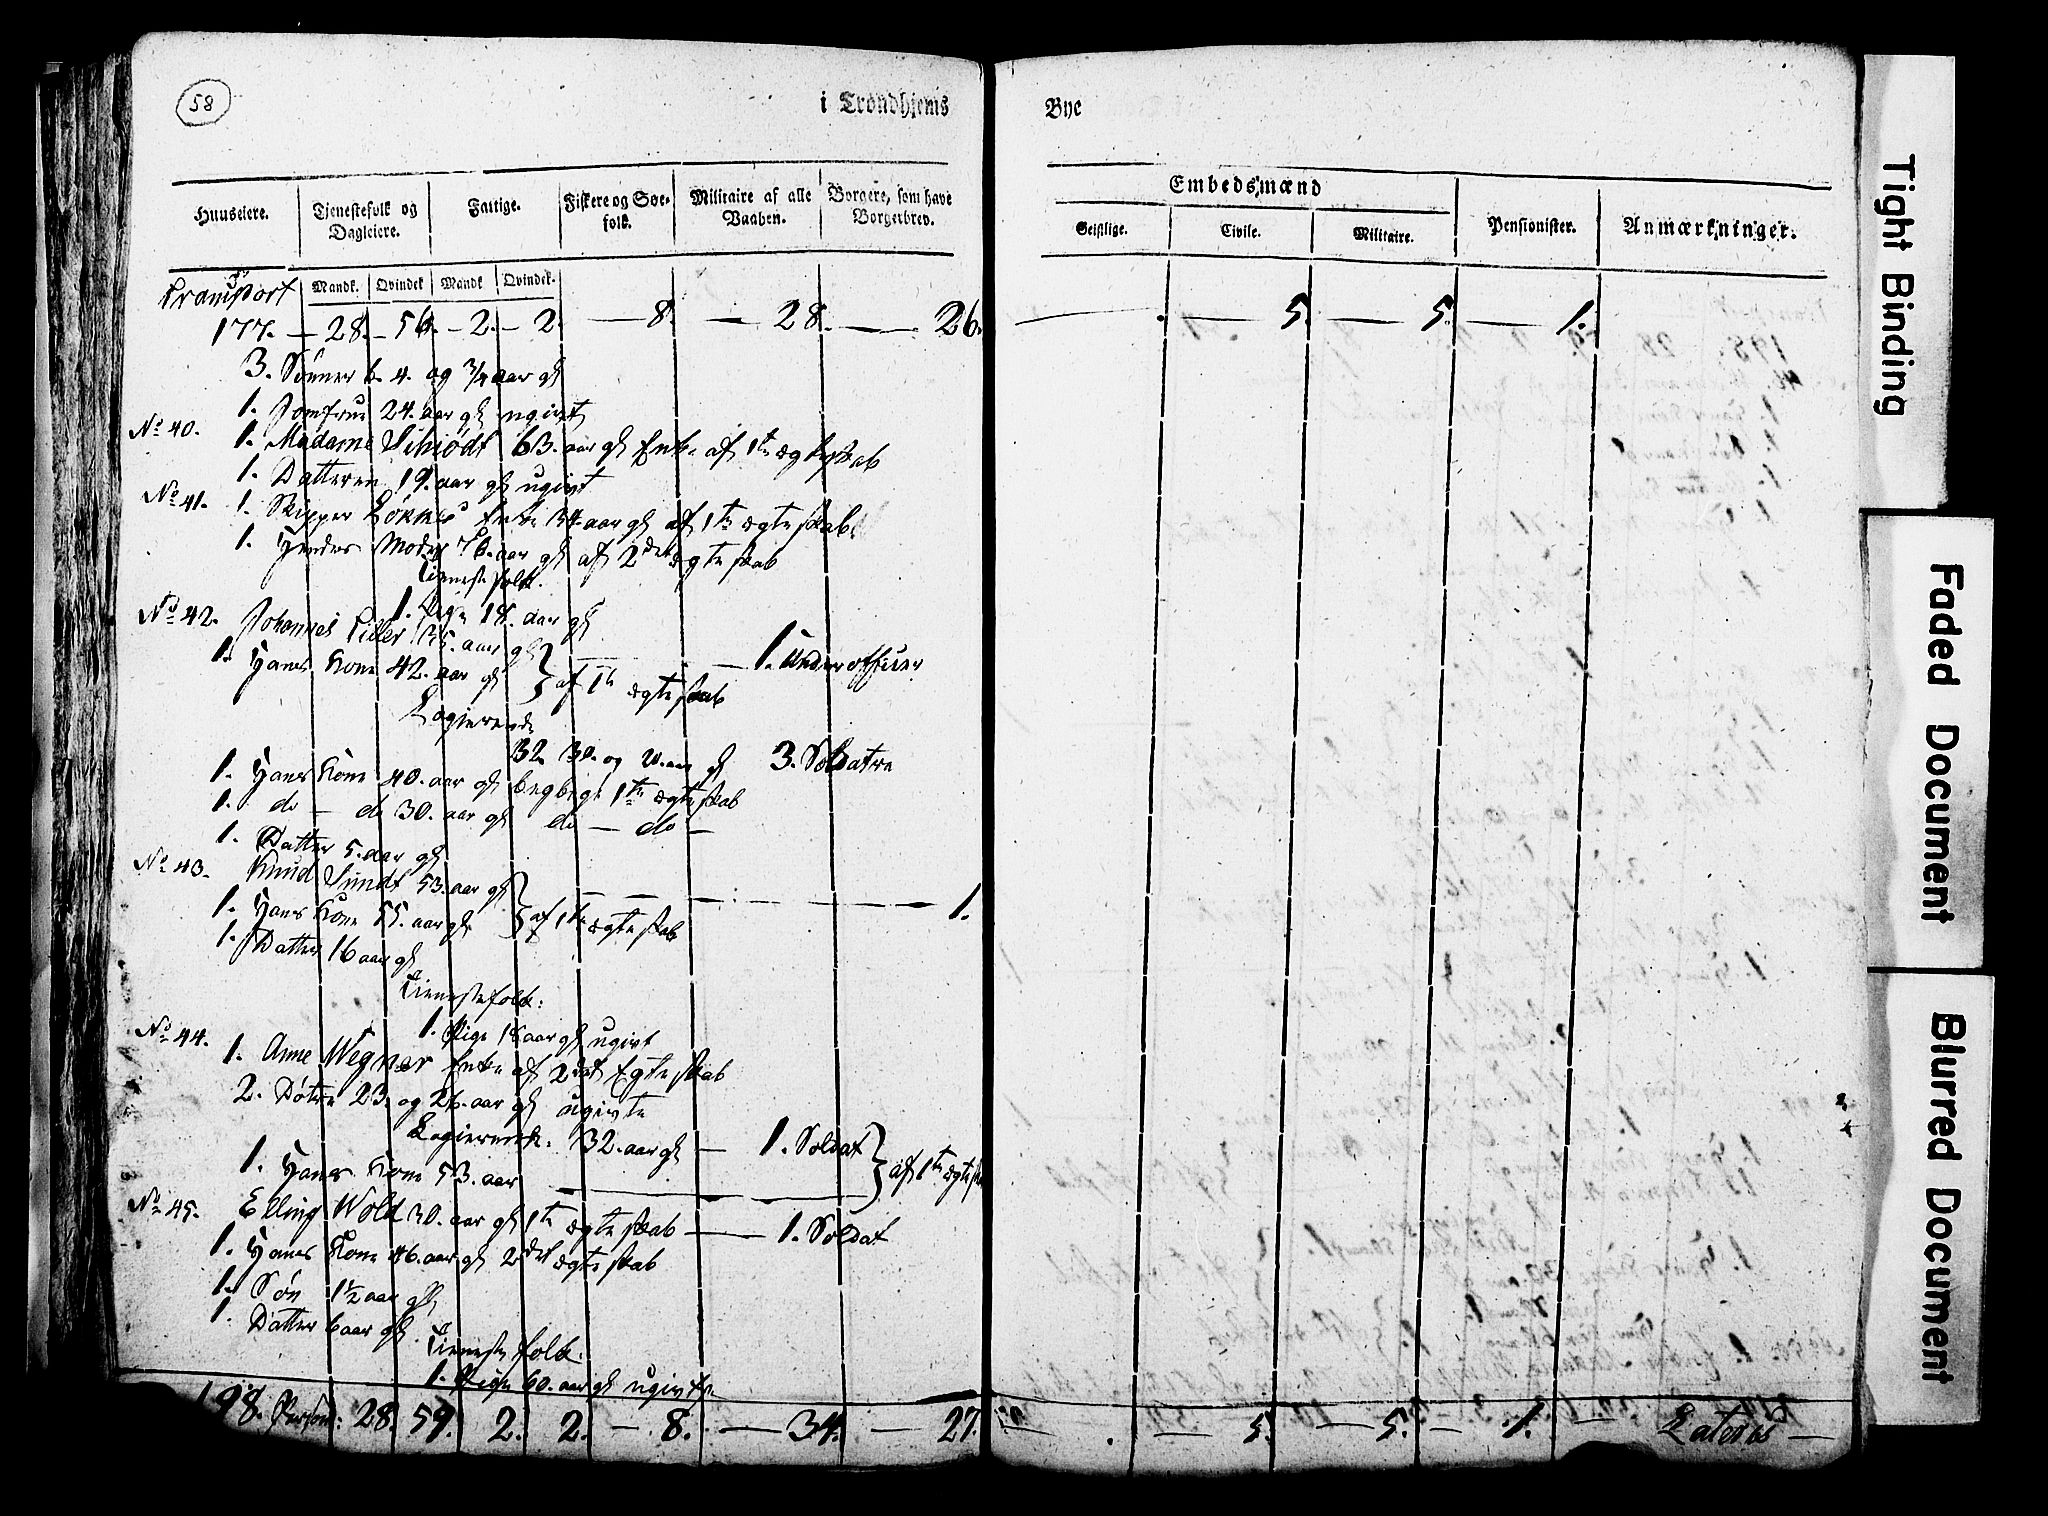 58
i Trondhjems
Bye
Huuseiere.
Tjenestefolk og Dagleiere.
Fattige.
Fiskere og Søefolk.
Militaire af alle Vaaben.
Borgere, som have Borgerbrev.
Embedsmænd
Geistlige.
Civile.
Militaire.
Pensionister.
Anmærkninger.
Mandk. Qvindek Mandk Qvindek.
Transport
177. — 28. — 56. — 2. — 2. — 8. — 28. — 26. — . — 5. — 5. — 1.
3. Sønner 6. 4. og 3/4 aar gl
1. Jomfrue 24. aar gl ugivt
No 40. 1. Madame Schiødt 63. aar gl Enke af 1te ægteskab
1. Datteren 19. aar gl ugivt
No 41. 1. Skipper Løkkes Enke 34. aar gl af 1te ægteskab.
1. Hendes Moder 76. aar gl af 2det ægteskab
Tienestefolk.
1. Pige 18. aar gl
No 42. Johannes Tiller 35. aar gl — 1. Underofficer
1. Hans Kone 42. aar gl } af 1te ægteskab
Logierende
32. 30. og 20. aar gl 3. Soldater
1. Hans Kone 40. aar gl begge 1te ægteskab
1. do — do 30. aar gl do — do —
1. Datter 5. aar gl
No 43. Knud Sundt 53. aar gl — 1.
1. Hans Kone 55. aar gl } af 1te ægteskab
1. Datter 16 aar gl
Tienestefolk:
1. Pige 18 aar gl ugivt
No 44. 1. Anne Wegner Enke af 2det Egteskab
2. Døtre 23. og 26. aar gl ugivte
Logierende: 32. aar gl — 1. Soldat
1. Hans Kone 53. aar } af 1te ægtesk
No 45. Elling Wold 30. aar gl 1te ægteskab — 1. Soldat
1. Hans Kone 46. aar gl 2det ægteskab
1. Søn 1 1/2 aar gl
1. Datter 6 aar gl
Tienestefolk.
1. Pige 60. aar gl ugivt
198. Person: 28. 59. 2. 2. — 8. — 34. — 27. — . — 5. — 5. — 1. — Lateris —
Tight Binding
Faded Document
Blurred Document